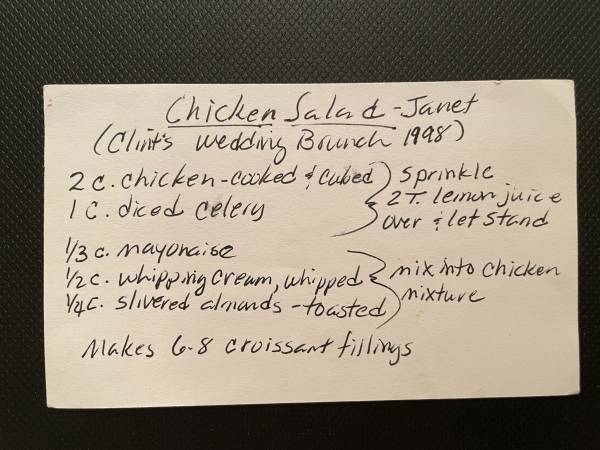 Chicken Salad - Janet
(Clint's Wedding Brunch 1998)
2 c. chicken - cooked & cubed
1 c. diced celery
sprinkle
2 T. lemon juice
over & let stand
1/3 c. mayonaise
1/2 c. whipping cream, whipped
1/4 c. slivered almonds - toasted
mix into chicken
mixture
Makes 6-8 croissant fillings